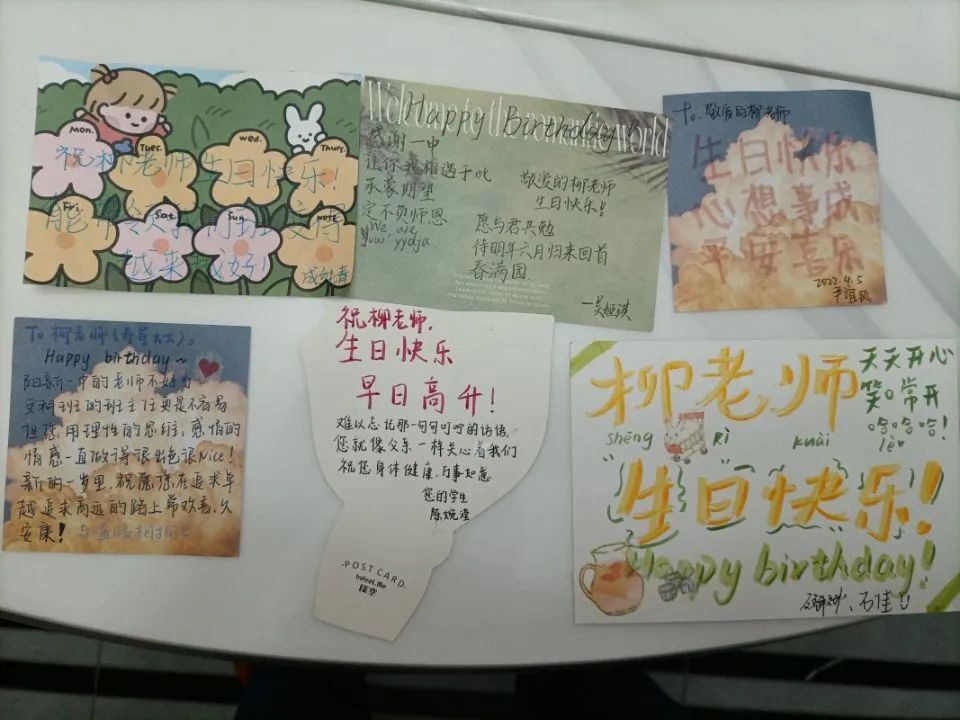 Mon.
Tues.
wed.
Thurs.
祝柳老师生日快乐!
Fri
Sat
Sun
NOTE
越来越好!
Welcome to the romantic world
Happy Birthday
感谢一中
让你我相遇于此
承蒙期望
定不负师恩
We are
your yyds
敬爱的柳老师
生日快乐!
愿与君共勉
待明年六月归来回首
春满园.
To. 敬爱的柳老师
生日快乐
心想事成
平安喜乐
2022.4.5
To 柳老师(寿星大大):
Happy birthday~
阳新一中的老师不好当
文科班的班主任更是不容易
但您用理性的思维,感性的
情感一直做得很出色很Nice!
新的一岁里,祝愿您在追求卓
越追求高远的路上常欢喜,久
安康!
祝柳老师,
生日快乐
早日高升!
难以忘记那一句句叮咛的话语,
您就像父亲一样关心着我们
祝您身体健康,万事如意
您的学生
POSTCARD.
柳老师
天天开心
笑口常开
哈哈哈!
shēng rì kuài lè
生日快乐!
Happy birthday!